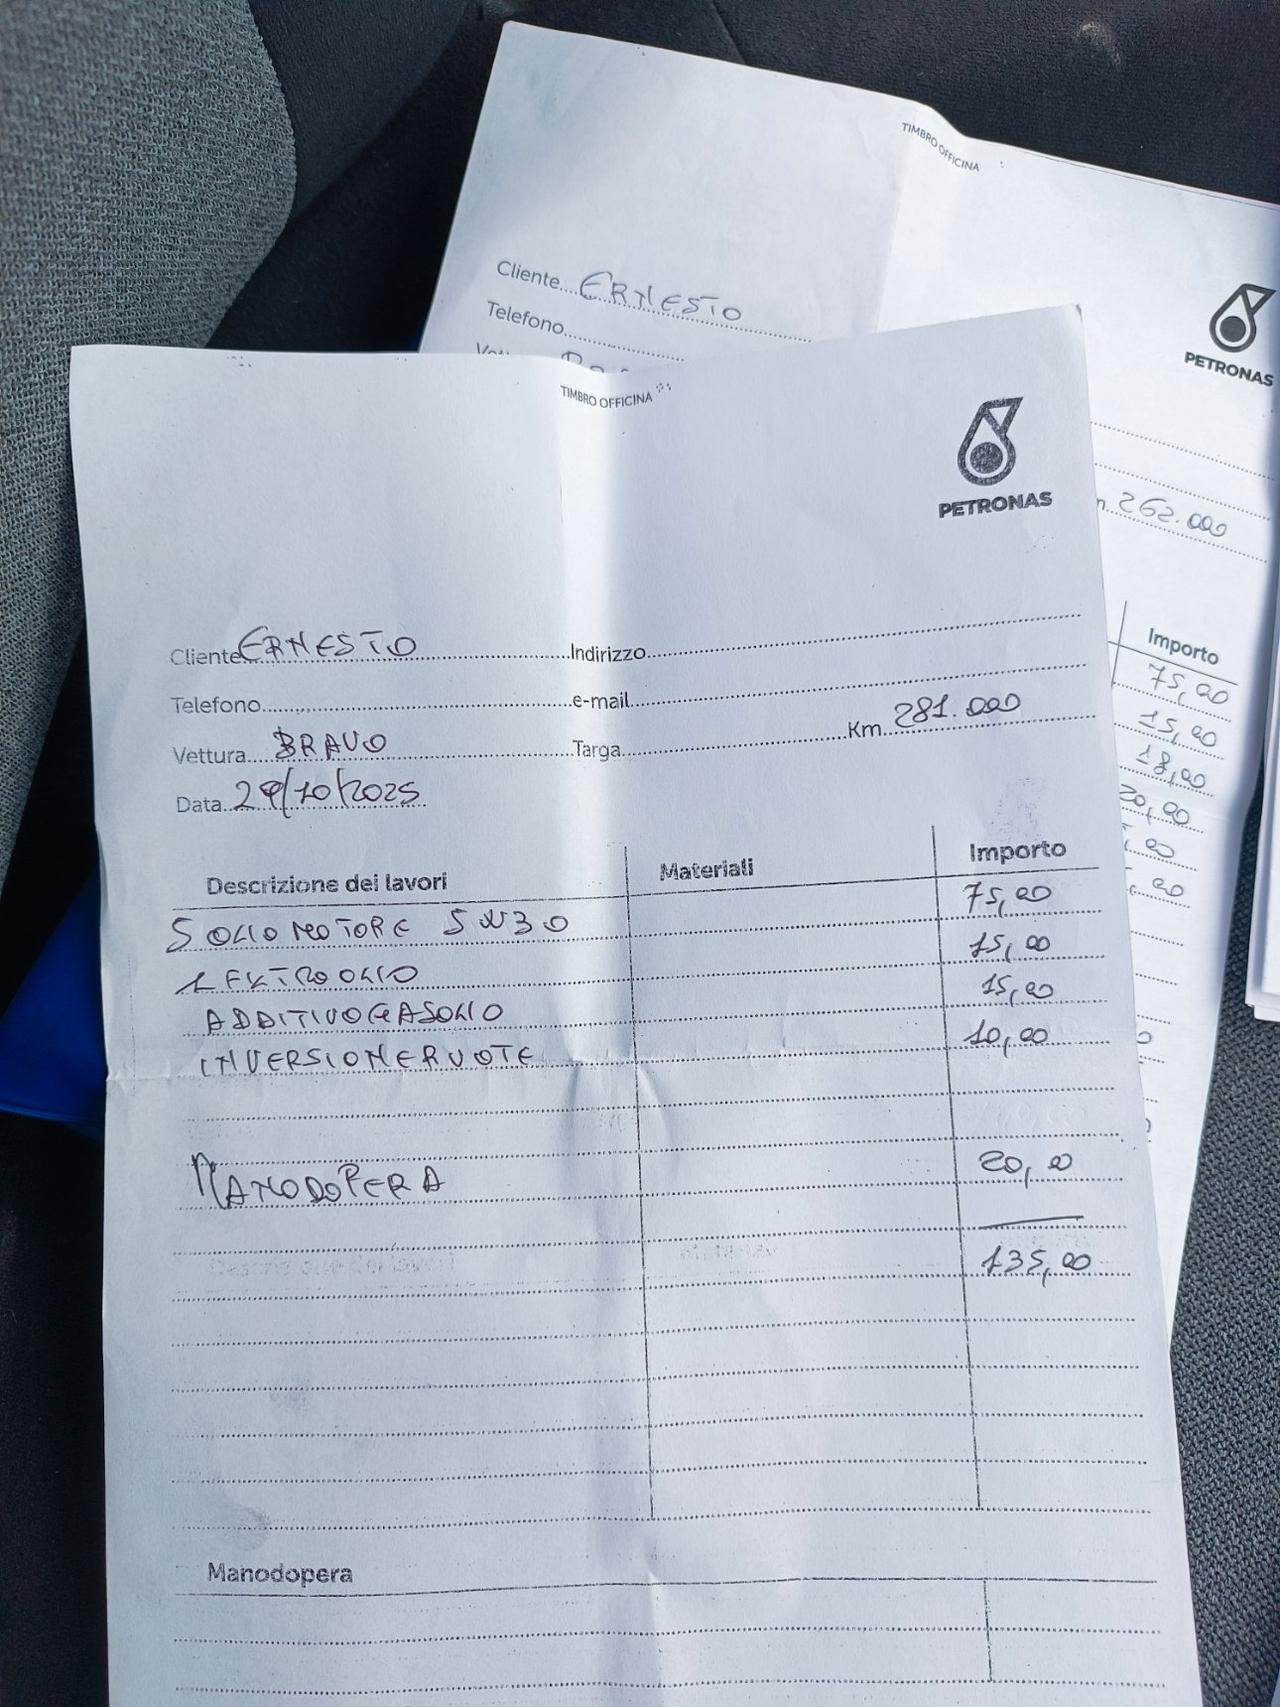 TIMBRO OFFICINA
Cliente ERNESTO
Telefono
PETRONAS
262.000
Importo
75,00
15,00
18,00
20,00
TIMBRO OFFICINA
PETRONAS
Cliente ERNESTO Indirizzo
Telefono e-mail
Vettura BRAVO Targa Km 281.000
Data 29/10/2025
Descrizione dei lavori Materiali Importo
5 OLIO MOTORE 5W30 75,00
1 FILTRO OLIO 15,00
ADDITIVO GASOLIO 15,00
INVERSIONE RUOTE 10,00
MANODOPERA 20,00
135,00
Manodopera